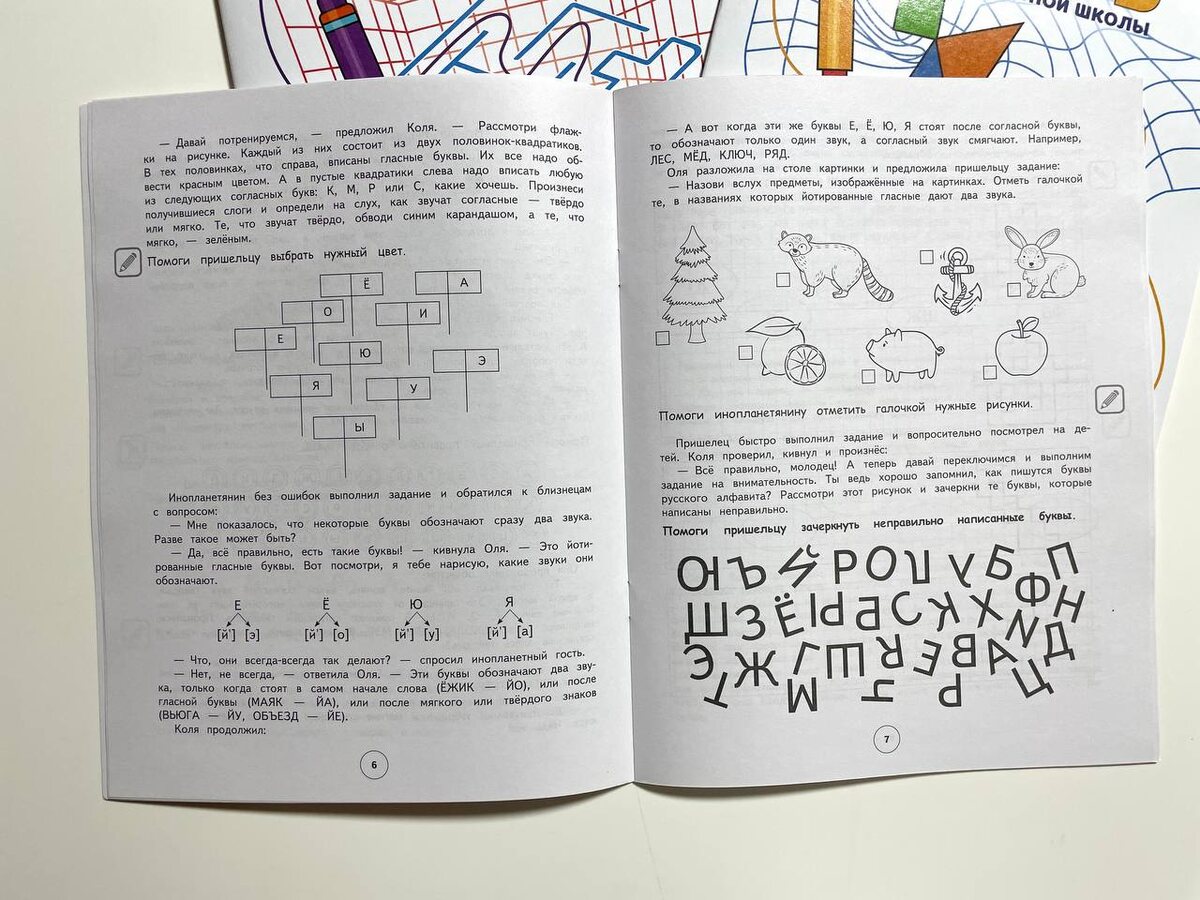 ной школы
— Давай потренируемся, — предложил Коля. — Рассмотри флаж-
ки на рисунке. Каждый из них состоит из двух половинок-квадратиков.
В тех половинках, что справа, вписаны гласные буквы. Их все надо об-
вести красным цветом. А в пустые квадратики слева надо вписать любую
из следующих согласных букв: К, М, Р или С, какие хочешь. Произнеси
получившиеся слоги и определи на слух, как звучат согласные — твёрдо
или мягко. Те, что звучат твёрдо, обводи синим карандашом, а те, что
мягко, — зелёным.
Помоги пришельцу выбрать нужный цвет.
Ё А
О И
Е
Ю Э
Я У
Ы
Инопланетянин без ошибок выполнил задание и обратился к близнецам
с вопросом:
— Мне показалось, что некоторые буквы обозначают сразу два звука.
Разве такое может быть?
— Да, всё правильно, есть такие буквы! — кивнула Оля. — Это йоти-
рованные гласные буквы. Вот посмотри, я тебе нарисую, какие звуки они
обозначают.
Е Ё Ю Я
[й'] [э] [й'] [о] [й'] [у] [й'] [а]
— Что, они всегда-всегда так делают? — спросил инопланетный гость.
— Нет, не всегда, — ответила Оля. — Эти буквы обозначают два зву-
ка, только когда стоят в самом начале слова (ЁЖИК — ЙО), или после
гласной буквы (МАЯК — ЙА), или после мягкого или твёрдого знаков
(ВЬЮГА — ЙУ, ОБЪЕЗД — ЙЕ).
Коля продолжил:
6
— А вот когда эти же буквы Е, Ё, Ю, Я стоят после согласной буквы,
то обозначают только один звук, а согласный звук смягчают. Например,
ЛЕС, МЁД, КЛЮЧ, РЯД.
Оля разложила на столе картинки и предложила пришельцу задание:
— Назови вслух предметы, изображённые на картинках. Отметь галочкой
те, в названиях которых йотированные гласные дают два звука.
Помоги инопланетянину отметить галочкой нужные рисунки.
Пришелец быстро выполнил задание и вопросительно посмотрел на де-
тей. Коля проверил, кивнул и произнёс:
— Всё правильно, молодец! А теперь давай переключимся и выполним
задание на внимательность. Ты ведь хорошо запомнил, как пишутся буквы
русского алфавита? Рассмотри этот рисунок и зачеркни те буквы, которые
написаны неправильно.
Помоги пришельцу зачеркнуть неправильно написанные буквы.
Ъ Р О У Б П
Ш З Ё С Х Ф Н
Э Ж Я В А Д
Т М Р Ц
7